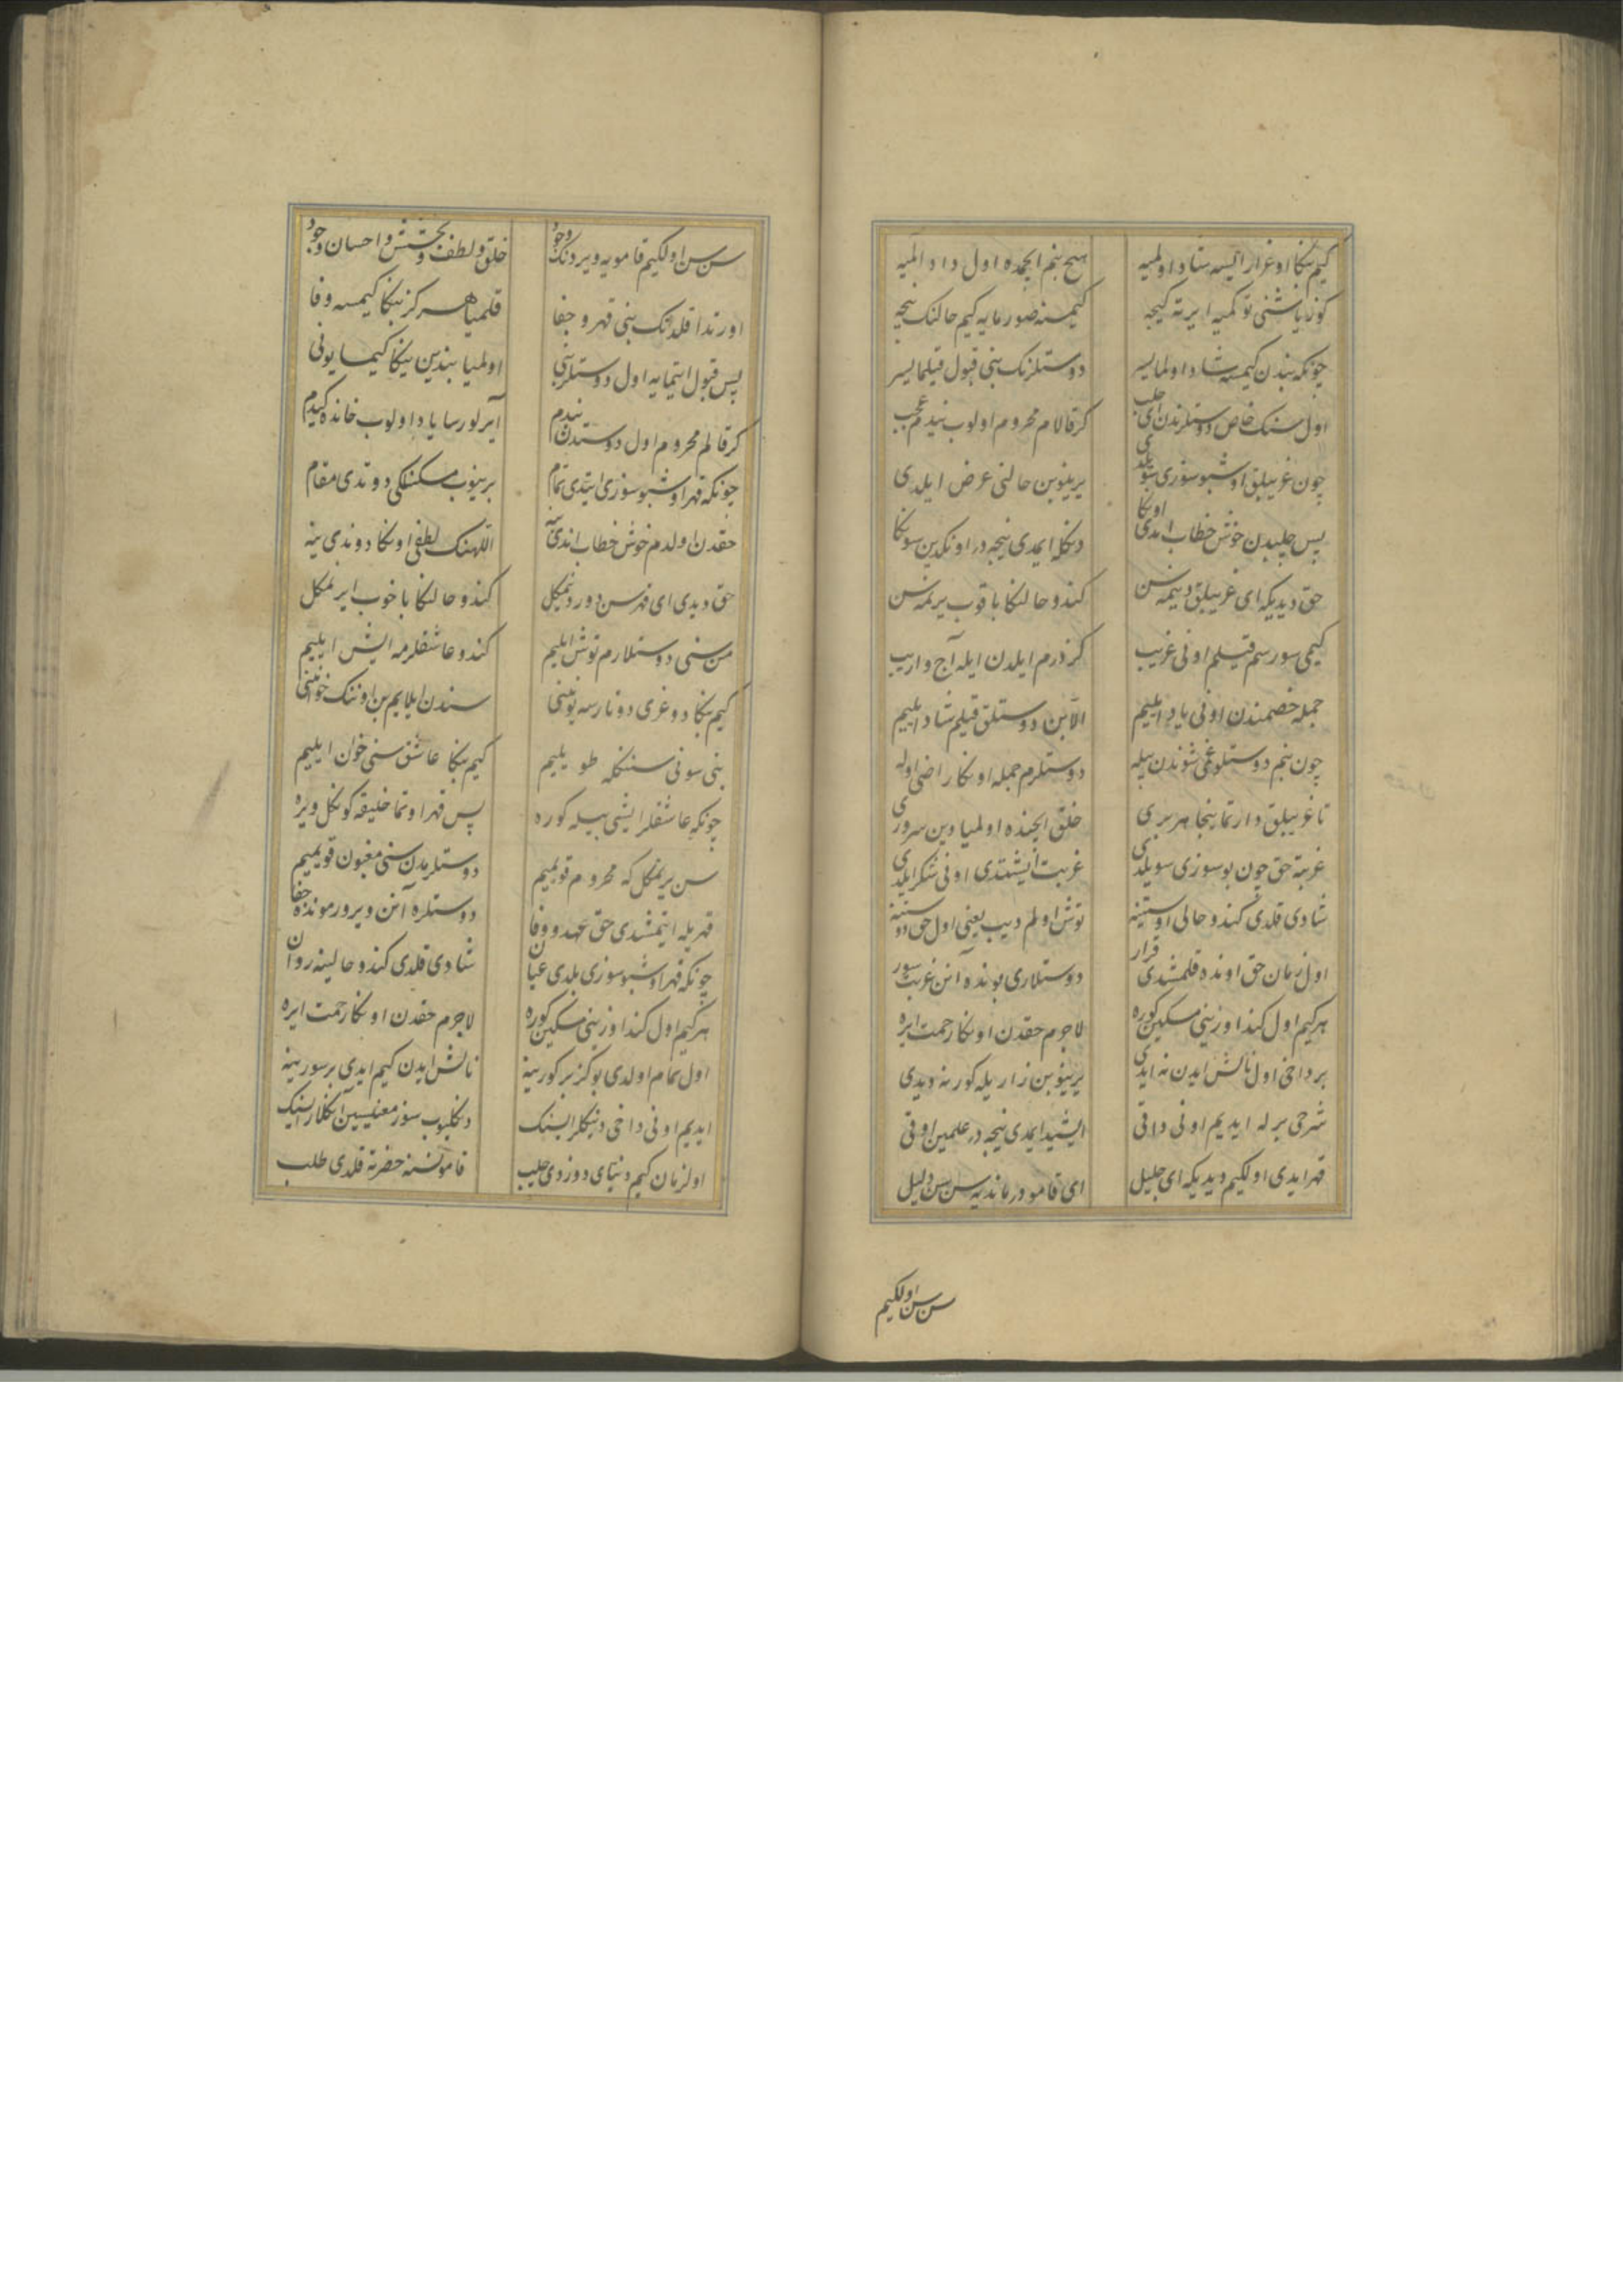 كيم بكا اوغرار ايسه شاد اولميه هيچ بنم ايچمده اول داد المیه
كوزياشنی توكمیه ايرته كيجه كيمسنه صورمايه كيم حالنك نيجه
چونكه بندن كيمسه شاد اولمايسر دوستلرنك بنی قبول قيلمايسر
اول سنك خاص دوستلرندن ای چلب كر قالام محروم اولوب نيدم عجب
چون غريبلق اوشبو سوزی سويلدی يرينوبن حالنی عرض ايلدی
پس چلبدن خوش خطاب اندی اوكا دكله ايمدی نيجه در اوكدين سوكا
حق ديديكه ای غريبلق ديمه سن كندو حالنكا باقوب يرنمه سن
كيمی سورسم قيلم اونی غريب كزدرم ايلدن ايله آج و اريب
جمله خصمندن اونی ياد ايليم الا بن دوستلق قيلم شاد ايليم
چون بنم دوستلوغمی شوندن بيله دوستلرم جمله اوكا راضی اوله
تا غريبلق دارتماينجا هر بری خلق ايچنده اولميا دين سروری
غربته حق چون بو سوزی سويلدی غربت ايشتدی اونی شكر ايلدی
شادی قلدی كندو حالی اوستنه توش اولم ديب يعنی اول حق دوستنه
اول زمان حق اونده قلمشدی قرار دوستلاری بونده آنن غربت سور
هركيم اول كنداوزينی مسكين كوره لاجرم حقدن اوكا رحمت ايره
بر داخی اول نالش ايدن نه ايدی يرينوبن زاريله كور نه ديدی
شرحی بر له ايديم اونی داقی ايشيد ايمدی نيجه در علمين اوقی
قهر ايدی اولكيم ديديكه ای جليل ای قامو درمانديه سن سن دليل
سن سن اولكيم
سن سن اولكيم قامويه ويردنك وجود خلق و لطف و بخشش و احسان و جود
اورندا قلدنك بنی قهر و جفا قلميا هركز بنكا كيمسه وفا
پس قبول ايتمايه اول دوستلر بنی اولميا بندين يكا كيمسا يونی
كر قالم محروم اول دوستدن نيدم آيرلورسا ياد اولوب خانده كيدم
چونكه قهر اوشبو سوزی ايتدی تمام برينوب مسكنلكی دوتدی مقام
حقدن اولدم خوش خطاب اندی ينه اللهنك لطفی اوكا دوندی ينه
حق ديدی ای قهر سن دورد نمكل كندو حالنكا باخوب ايرلمكل
من سنی دوستلارم توش ايليم كندو عاشقلرمه ايش ايليم
كيم بكا دوغری دوتارسه يوننی سندن ايلايم بن اوننك خونينی
بنی سونی سنكله طويليم كيم بكا عاشق سنی خوان ايليم
چونكه عاشقلر ايشی بيله كوره پس قهر اوتما خليقه كوكل ويره
سن يرنمكل كه محروم قويميم دوستلريمدن سنی مغبون قويميم
قهريله ايتمشدی حق عهد و وفا دوستلره آنن ويرور مونده جفا
چونكه قهر اوشبو سوزی بلدی عيان شادی قلدی كندو حالينه روان
هركيم اول كنداوزينی مسكين كوره لاجرم حقدن اوكا رحمت ايره
اول تمام اولدی بو كز بر كورينه نالش ايدن كيم ايدی بر سورينه
ايديم اونی داخی دنكلرايسنك دنكليوب سوز معنيسين آنكلارايسنك
اولزمان كيم دنيای دوزدی چلب قامو نسنه حضرته قلدی طلب